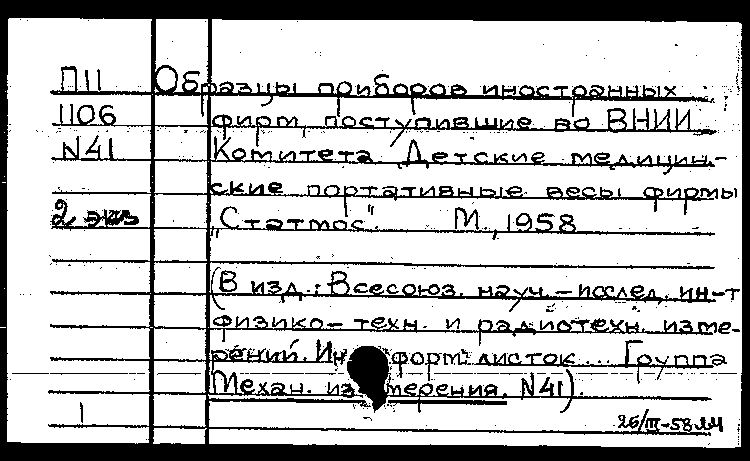 П11 Образцы приборов иностранных
1106 фирм, поступившие во ВНИИ
N41 Комитета. Детские медицин-
ские портативные весы фирмы
2 экз „Статмос". М., 1958
(В изд.: Всесоюз. науч.-исслед. ин-т
физико-техн. и радиотехн. изме-
рений. Информ. листок... Группа
Механ. измерения. N41).
1 25/III-58